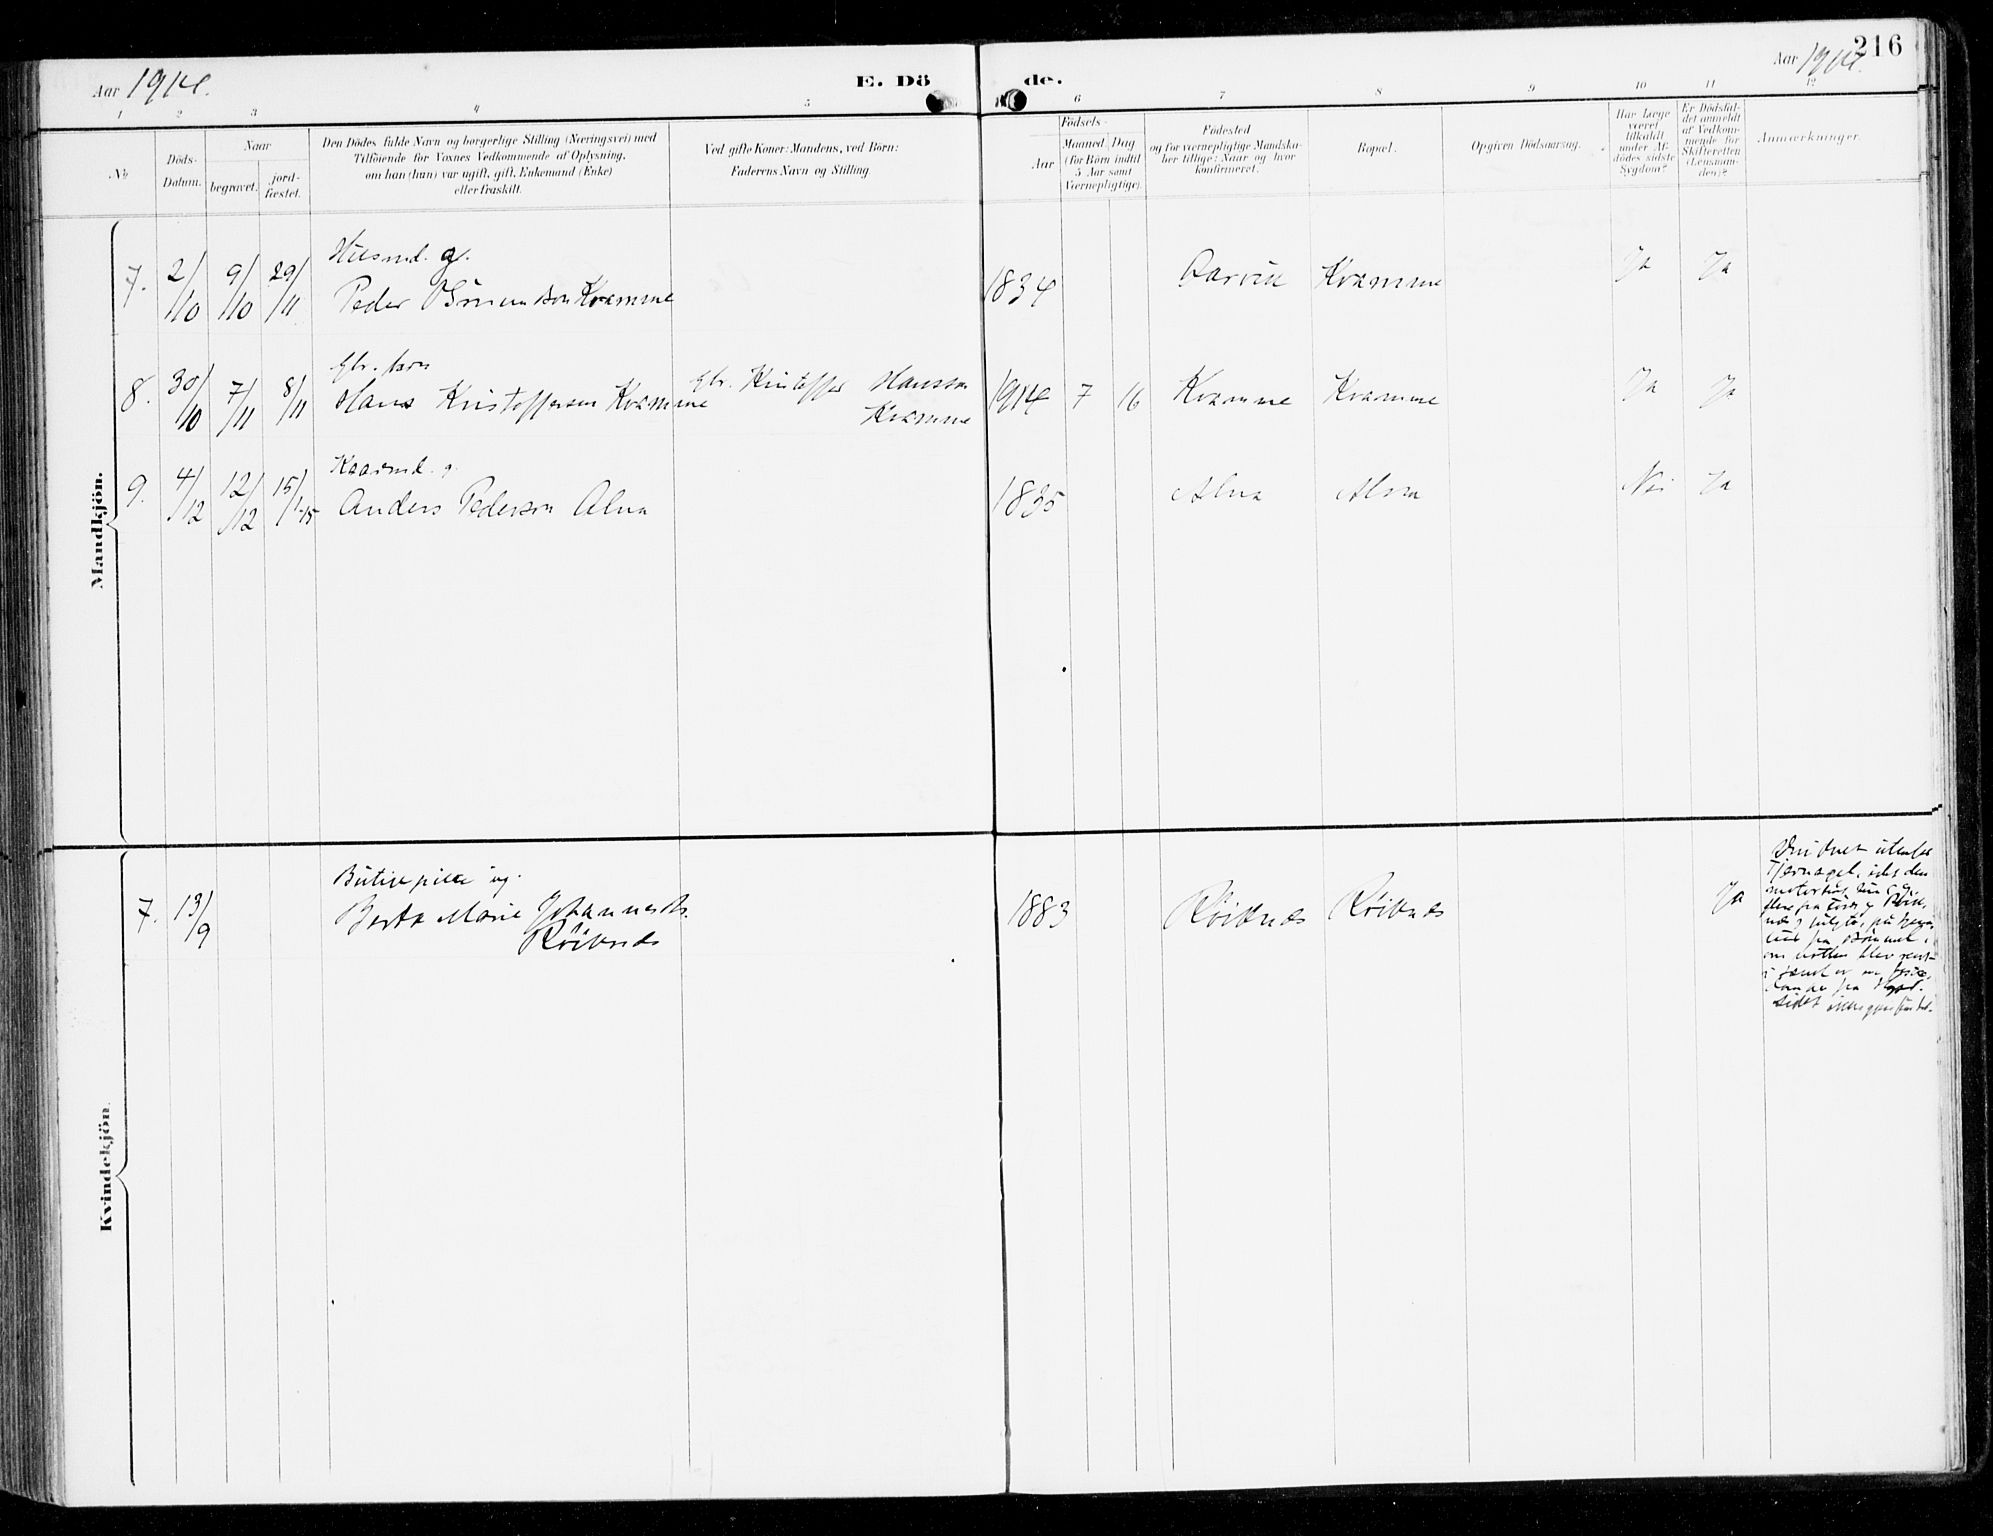 Aar 1914.
E. Dö
de.
Aar 1914.
216
1 2 3 4 5 6 7 8 9 10 11 12
№
Döds-
Datum.
Naar
begravet.
jord-
fæstet.
Den Dödes fulde Navn og borgerlige Stilling (Næringsvei) med
Tilföiende for Voxnes Vedkommende af Oplysning,
om han (hun) var ugift, gift, Enkemand (Enke)
eller fraskilt.
Ved gifte Koner: Mandens, ved Börn:
Faderens Navn og Stilling.
Födsels-
Aar
Maaned Dag
(for Börn indtil
5 Aar samt
Værnepligtige).
Födested
og for værnepligtige Mandska-
ber tillige: Naar og hvor
konfirmeret.
Bopæl.
Opgiven Dödsaarsag.
Har Læge
været
tilkaldt
under Af-
dödes sidste
Sygdom?
Er Dödsfal-
det anmeldt
af Vedkom-
mende for
Skifteretten
(Lensman-
den)?
Anmærkninger.
Mandkjön.
Husmd. g.
7. 2/10 9/10 29/11 Peder Kvamme 1834 Kvamme Ja Ja
Gbr. barn
8. 30/10 7/11 8/11 Hans Kristoffersen Kvamme Gbr. Kristoffer Hansson
Kvamme
1914 7 16 Kvamme Kvamme Ja Ja
Kaarmd. g.
9. 4/12 12/12 15/1-15 Anders Pederson Alna 1835 Alna Alna Nei Ja
Kvindekjön.
ug.
7. 13/9 Berta Marie Johannesdr.
Röiknes
1883 Röiknes Röiknes Ja
Druknet utenfor
den
fra Bömmel,
blev rent